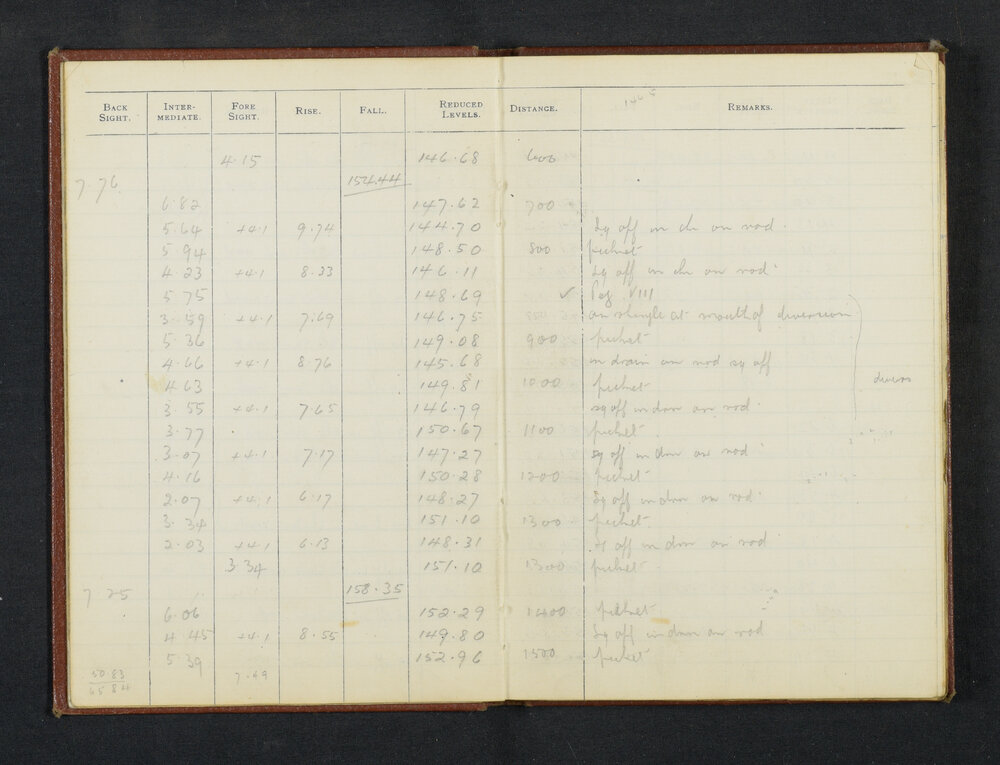 BACK SIGHT. INTER-MEDIATE. FORE SIGHT. RISE. FALL. REDUCED LEVELS. DISTANCE. REMARKS.
4.15 146.68 600
7.76 154.44
6.82 147.62 700
5.64 +4.1 9.74 144.70 Sq off in dr on rod.
5.94 148.50 800 pichet
4.23 +4.1 8.33 146.11 Sq off in dr on rod.
5.75 148.69 ✓ Peg VIII
3.59 +4.1 7.69 146.75 on shingle at mouth of diversion
5.36 149.08 900 pichet
4.66 +4.1 8.76 145.68 in drain on rod sq off
4.63 149.81 1000 pichet
3.55 +4.1 7.65 146.79 sq off in drn on rod.
3.77 150.67 1100 pichet.
3.07 +4.1 7.17 147.27 sq off in drn on rod
4.16 150.28 1200 pichet
2.07 +4.1 6.17 148.27 Sq off in drn on rod.
3.34 151.10 1300 pichet.
2.03 +4.1 6.13 148.31 off in drn on rod
3.34 151.10 1300 pichet.
7.25 158.35
6.06 152.29 1400 pichet
4.45 +4.1 8.55 149.80 Sq off in drn on rod
5.39 152.96 1500 pichet
50.83 7.49
65.84